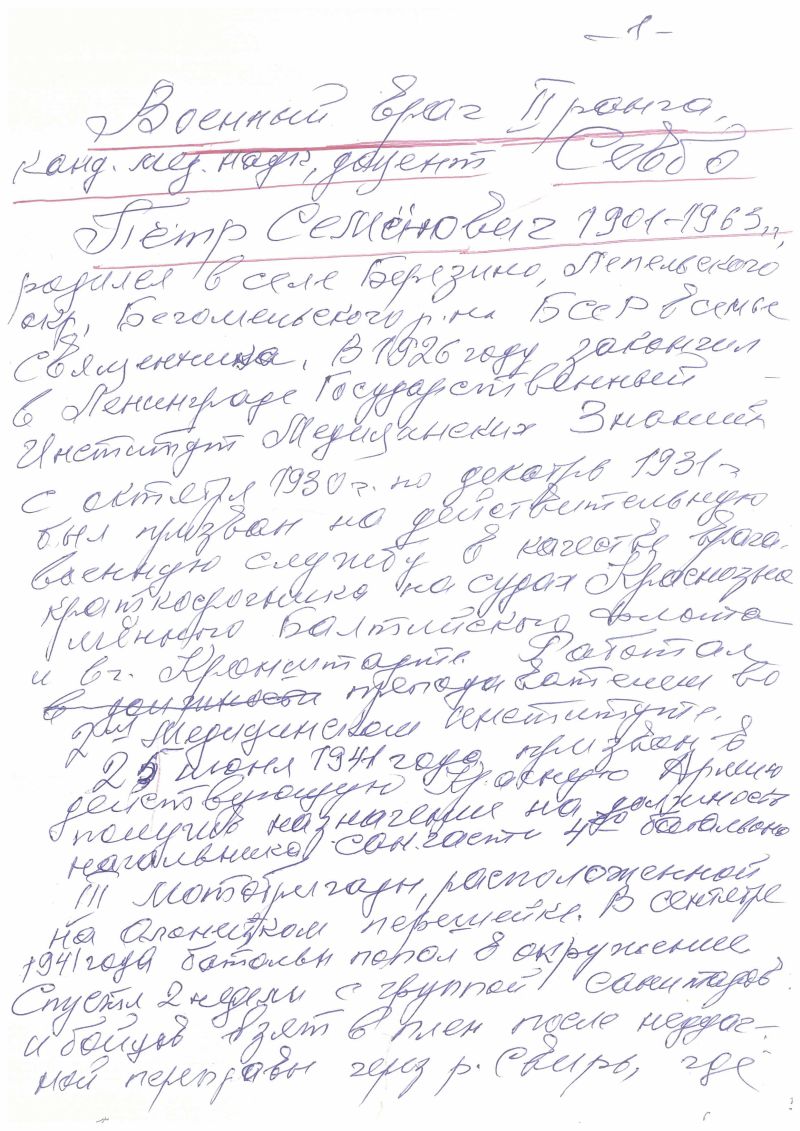 - 1 -
Военный врач II ранга,
канд. мед. наук, доцент Севбо
Пётр Семёнович 1901-1963 г.г.,
родился в селе Березино, Лепельского
окр., Бегомельского р-на БССР в семье
священника. В 1926 году закончил
в Ленинграде Государственный
Институт Медицинских Знаний
с октября 1930 г. по декабрь 1931 г.
был призван на действительную
военную службу в качестве врача-
краткосрочника на судах Краснозна
мённого Балтийского флота
и в г. Кронштадте. Работал
в должности преподавателем во
2ом Медицинском институте.
25 июня 1941 года призван в
действующую Красную Армию
получив назначение на должность
начальника сан.части 4го батальона
III мотобригады, расположенной
на Олонецком перешейке. В сентябре
1941 года батальон попал в окружение
Спустя 2 недели с группой санитаров
и бойцов взят в плен после неудач-
ной переправы через р. Свирь, где